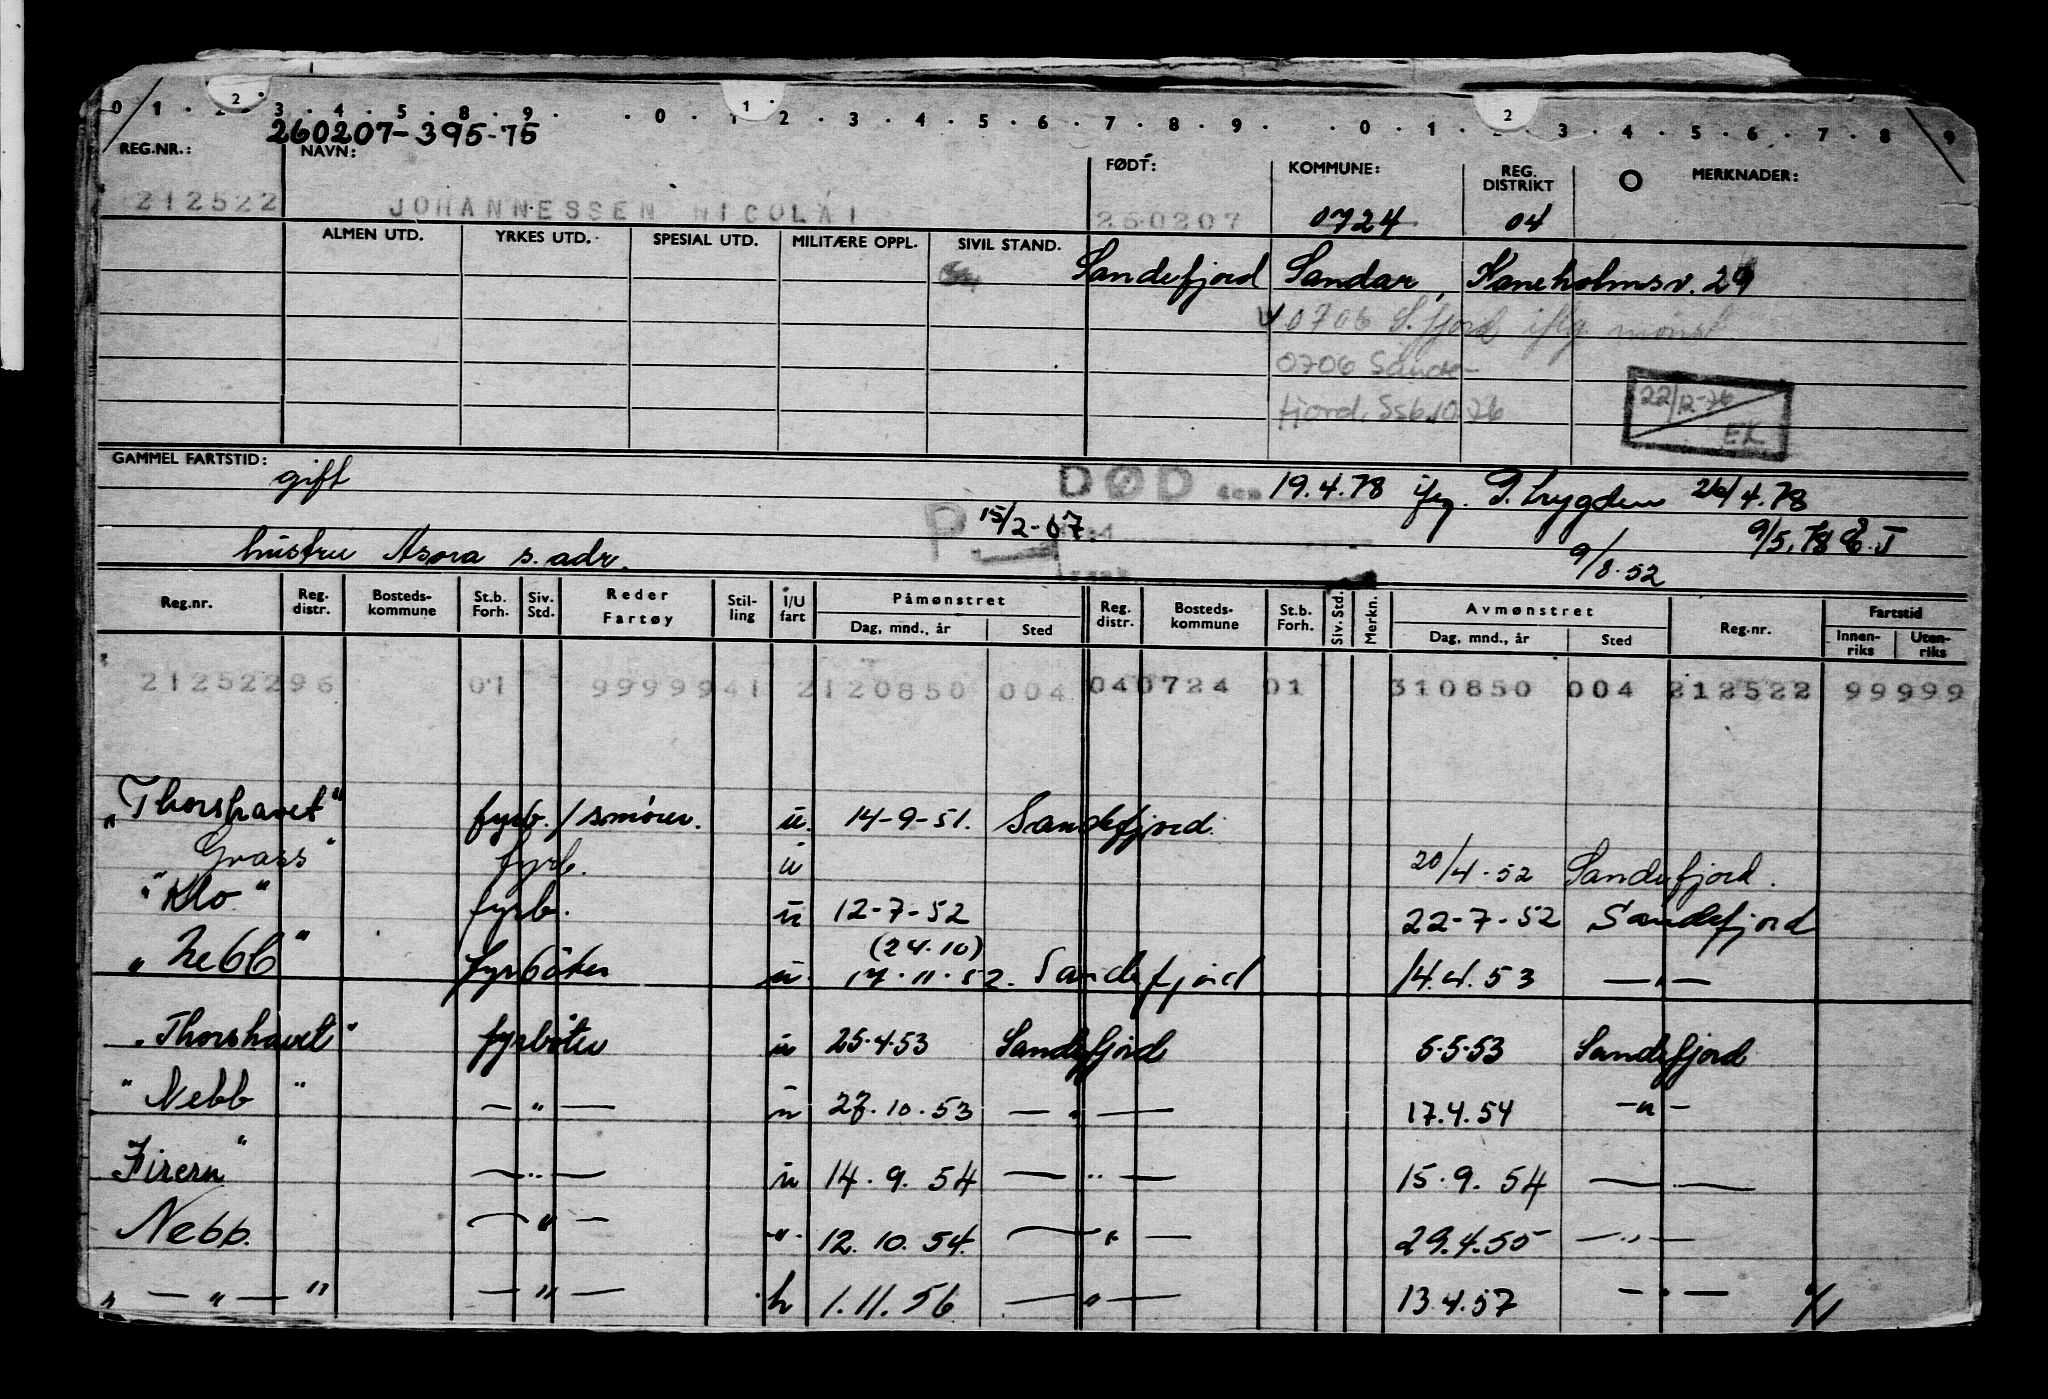 0 1 . 2 3 . 4 . 5 . 8 . 9 . . 0 . 1 2 . 3 . 4 . 5 . 6 . 7 . 8 . 9 . . 0 . 1 . 2 3 . 4 . 5 . 6 . 7 . 8 9
260207-395-75
REG.NR.: NAVN: FØDT: KOMMUNE: REG. DISTRIKT O MERKNADER:
212522 JOHANNESSEN NICOLAI 260207 0724 04
ALMEN UTD. YRKES UTD. SPESIAL UTD. MILITÆRE OPPL. SIVIL STAND.
Sandefjord Sandar, Kaneholmsv. 29
0706 S.fjord iflg mønst
0706 Sande-
fjord, 22/12-76
EK
GAMMEL FARTSTID:
gift DØD den 19.4.78 ifg. P.trygden 26/4.78
P 15/2-67 9/5.78 E.J
hustru Asora s. adr. 9/8.52
Reg.nr. Reg. distr. Bosteds-kommune St.b. Forh. Siv. Std. Reder Fartøy Stil-ling I/U fart Påmønstret Reg. distr. Bosteds-kommune St.b. Forh. Siv. Std. Merkn. Avmønstret Reg.nr. Fartstid
Dag, mnd., år Sted Dag, mnd., år Sted Innen-riks Uten-riks
21252296 01 9999941 2120850 004 040724 01 310850 004 212522 99999
„Thorshavet" fyrb. / smører. u. 14-9-51. Sandefjord.
Grass" fyrb. u 20/4-52 Sandefjord.
"Klo" fyrb. u 12-7-52 22-7-52 Sandefjord
(24.10)
„Nebb" fyrbøter u. 17.11.52. Sandefjord 14.4.53 —"—
„Thorshavet" fyrbøter u 25.4.53 Sandefjord 5.5.53 Sandefjord
"Nebb" —"— u 27.10.53 —"— 17.4.54 —"—
Firern" —"— u 14.9.54 —"— 15.9.54 —"—
Nebb. —"— " 12.10.54. —"— 29.4.55 —"—
„—"—" —"— h 1.11.56 —"— 13.4.57 —"—